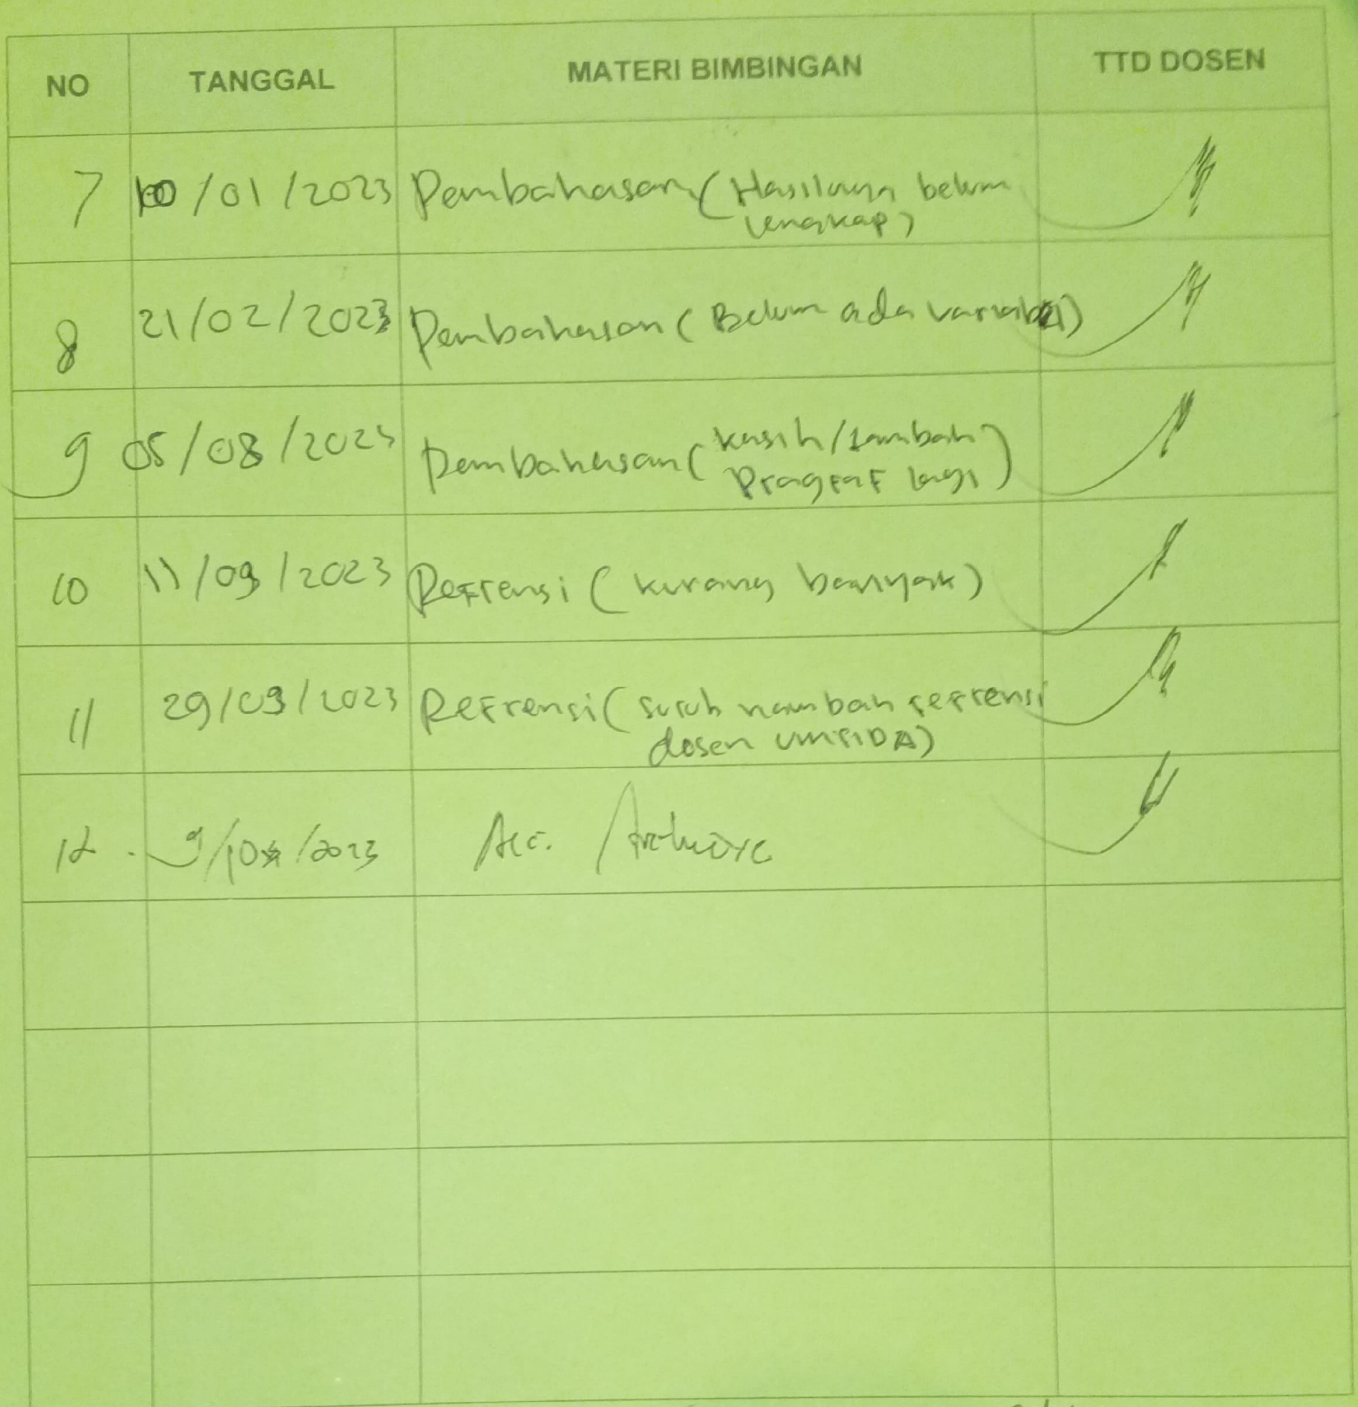 NO TANGGAL MATERI BIMBINGAN TTD DOSEN
7 10/01/2023 Pembahasan (Hasilnya belum
lengkap)
8 21/02/2023 Pembahasan (Belum ada variabel)
9 05/08/2023 Pembahasan (kasih/tambah
Pragraf lagi)
10 11/09/2023 Refrensi (kurang banyak)
11 29/09/2023 Refrensi (suruh nambah refrensi
dosen UMSIDA)
12. 9/10/2023 Acc.